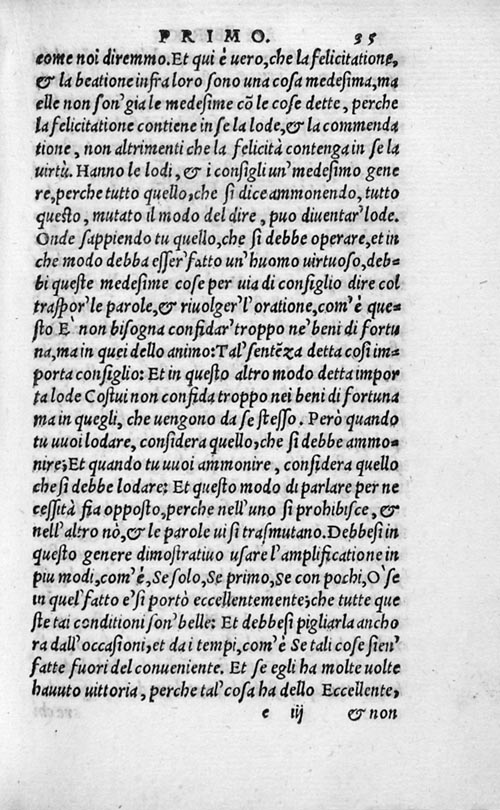 PRIMO. 35
come noi diremmo. Et qui é uero, che la felicitatione,
& la beatione infra loro sono una cosa medesima, ma
elle non son' gia le medesime cõ le cose dette, perche
la felicitatione contiene in se la lode, & la commenda
tione, non altrimenti che la felicità contenga in se la
uirtù. Hanno le lodi, & i consigli un' medesimo gene
re, perche tutto quello, che si dice ammonendo, tutto
questo, mutato il modo del dire, puo diuentar' lode.
Onde sappiendo tu quello, che si debbe operare, et in
che modo debba esser' fatto un' huomo uirtuoso, deb-
bi queste medesime cose per uia di consiglio dire col
traspor' le parole, & riuolger' l'oratione, com' é que-
sto E' non bisogna confidar' troppo ne' beni di fortu
na, ma in quei dello animo: Tal' sentẽza detta cosi im-
porta consiglio: Et in questo altro modo detta impor
ta lode Costui non confida troppo nei beni di fortuna
ma in quegli, che uengono da se stesso. Però quando
tu uuoi lodare, considera quello, che si debbe ammo-
nire; Et quando tu uuoi ammonire, considera quello
che si debbe lodare: Et questo modo di parlare per ne
cessità fia opposto, perche nell'uno si prohibisce, &
nell'altro nò, & le parole ui si trasmutano. Debbesi in
questo genere dimostratiuo usare l'amplificatione in
piu modi, com' é, Se solo, Se primo, Se con pochi, O' se
in quel' fatto e' si portò eccellentemente; che tutte que
ste tai conditioni son' belle: Et debbesi pigliarla ancho
ra dall' occasioni, et da i tempi, com' é Se tali cose sien'
fatte fuori del conueniente. Et se egli ha molte uolte
hauuto uittoria, perche tal' cosa ha dello Eccellente,
e iij & non